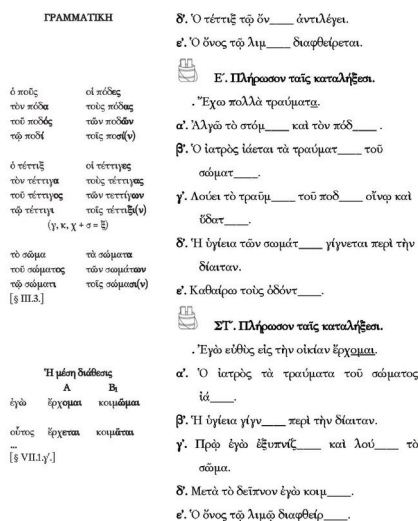 ΓΡΑΜΜΑΤΙΚΗ
ὁ ποῦς οἱ πόδες
τὸν πόδα τοὺς πόδας
τοῦ ποδός τῶν ποδῶν
τῷ ποδί τοῖς ποσί(ν)
ὁ τέττιξ οἱ τέττιγες
τὸν τέττιγα τοὺς τέττιγας
τοῦ τέττιγος τῶν τεττίγων
τῷ τέττιγι τοῖς τέττιξι(ν)
(γ, κ, χ + σ = ξ)
τὸ σῶμα τὰ σώματα
τοῦ σώματος τῶν σωμάτων
τῷ σώματι τοῖς σώμασι(ν)
[§ III.3.]
Ἡ μέση διάθεσις
Α Β₁
ἐγὼ ἔρχομαι κοιμῶμαι
οὗτος ἔρχεται κοιμᾶται
...
[§ VII.1.γʹ.]
δʹ. Ὁ τέττιξ τῷ ὄν____ ἀντιλέγει.
εʹ. Ὁ ὄνος τῷ λιμ____ διαφθείρεται.
Εʹ. Πλήρωσον ταῖς καταλήξεσι.
. Ἔχω πολλὰ τραύματα.
αʹ. Ἀλγῶ τὸ στόμ____ καὶ τὸν πόδ____ .
βʹ. Ὁ ἰατρὸς ἰάεται τὰ τραύματ____ τοῦ
σώματ____.
γʹ. Λούει τὸ τραῦμ____ τοῦ ποδ____ οἴνῳ καὶ
ὕδατ____.
δʹ. Ἡ ὑγίεια τῶν σωμάτ____ γίγνεται περὶ τὴν
δίαιταν.
εʹ. Καθαίρω τοὺς ὀδόντ____.
ΣΤʹ. Πλήρωσον ταῖς καταλήξεσι.
. Ἐγὼ εὐθὺς εἰς τὴν οἰκίαν ἔρχομαι.
αʹ. Ὁ ἰατρὸς τὰ τραύματα τοῦ σώματος
ἰά____.
βʹ. Ἡ ὑγίεια γίγν____ περὶ τὴν δίαιταν.
γʹ. Πρῲ ἐγὼ ἐξυπνίζ____ καὶ λού____ τὸ
σῶμα.
δʹ. Μετὰ τὸ δεῖπνον ἐγὼ κοιμ____.
εʹ. Ὁ ὄνος τῷ λιμῷ διαφθείρ____.